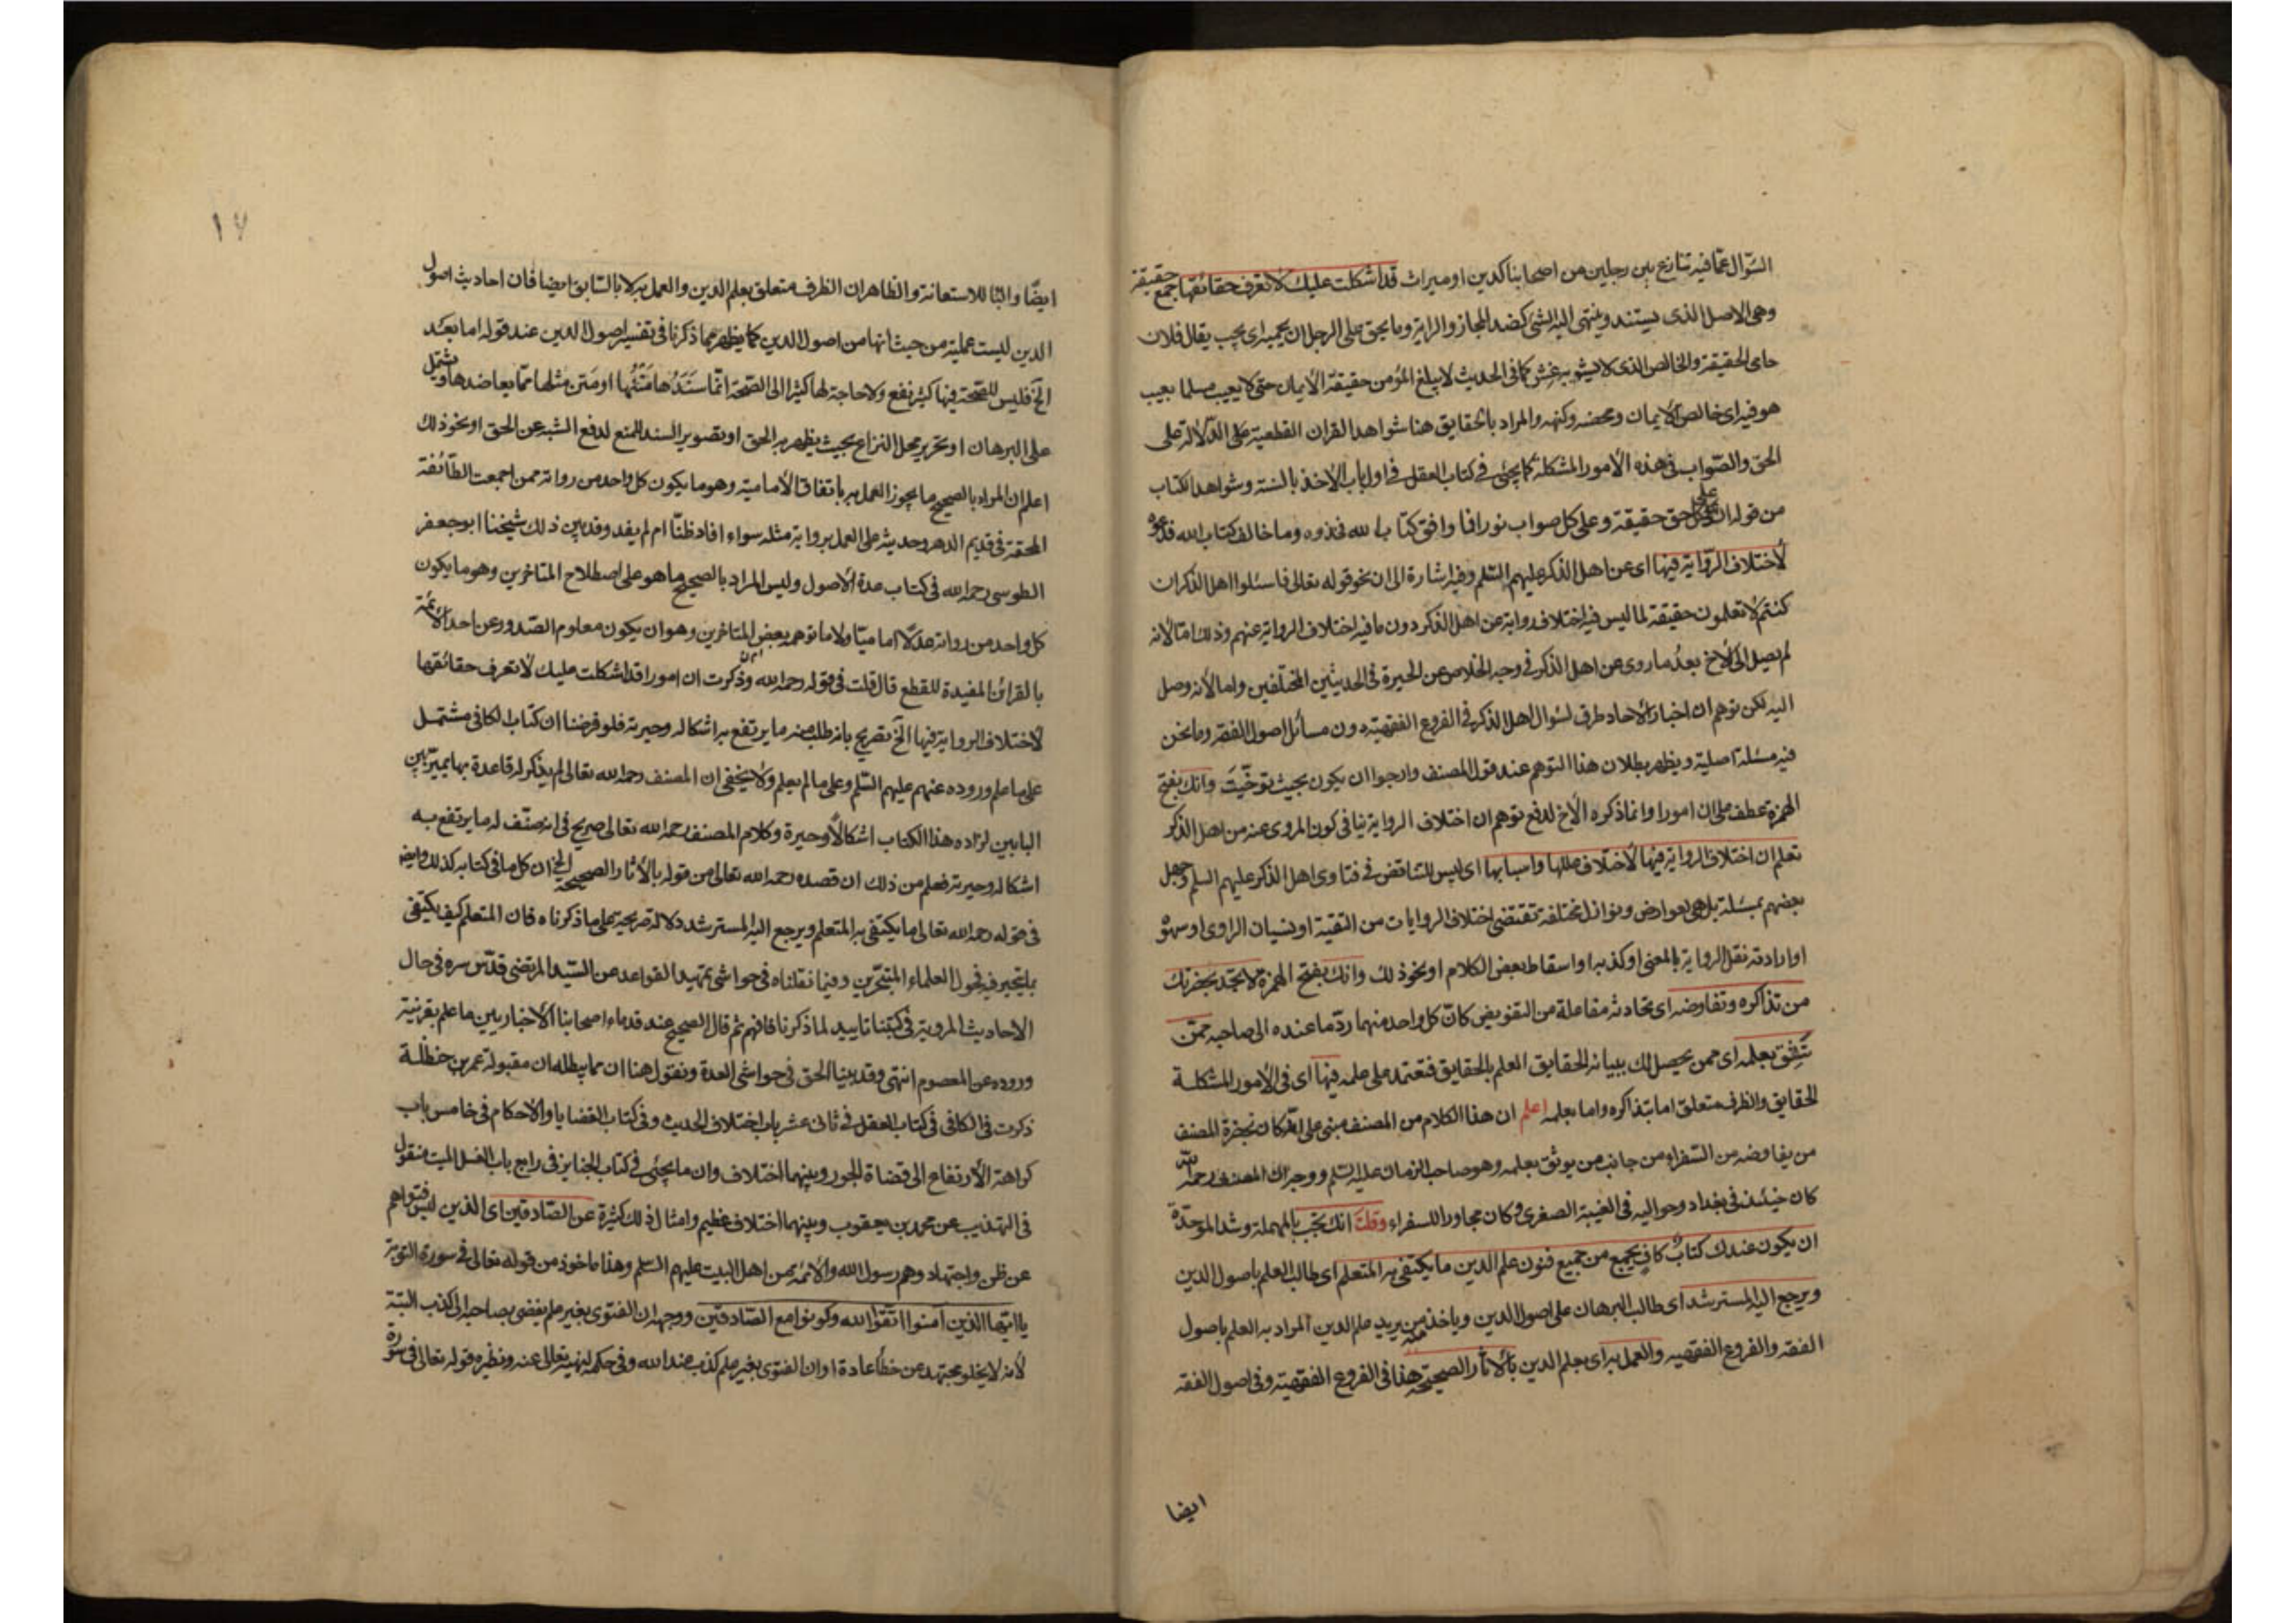 السؤال عما فيه تنازع بين رجلين من اصحابنا كدين او ميراث قد اشكلت عليك لا تعرف حقائقها جمع حقيقة
وهى الاصل الذى يستند وينتهى اليه الشئ كضد المجاز والراية وما يحق على الرجل ان يحميه اى يجب يقال فلان
حامى الحقيقة والخالص الذى لا يشوبه غش كما فى الحديث لا يبلغ المؤمن حقيقة الايمان حتى لا يعيب مسلما بعيب
هو فيه اى خالص الايمان ومحضه وكنهه والمراد بالحقايق هنا شواهد القران القطعية على الدلالة على
الحق والصواب فى هذه الأمور المشكلة كما يجئ فى كتاب العقل فى اول باب الأخذ بالسنة وشواهد الكتاب
من قوله ان على كل حق حقيقة وعلى كل صواب نورا فما وافق كتاب الله فخذوه وما خالف كتاب الله فدعوه
لأختلاف الرواية فيها اى عن اهل الذكر عليهم السلم وفيه اشارة الى ان نحو قوله تعالى فاسئلوا اهل الذكر ان
كنتم لا تعلمون حقيقة لما ليس فيه اختلاف رواية عن اهل الذكر دون ما فيه اختلاف الرواية عنهم وذلك اما لانه
لم يصل الى الأخ بعد ما روى عن اهل الذكر فى وجه الخلاص عن الحيرة فى الحديثين المختلفين واما لأنه وصل
اليه لكن توهم ان اخبار الآحاد طرق لسؤال اهل الذكر فى الفروع الفقهية دون مسائل اصول الفقه وما نحن
فيه مسئلة اصلية ويظهر بطلان هذا التوهم عند قول المصنف وارجوا ان يكون بحيث توخيت وانك بفتح
الهمزة عطف على ان امورا وانما ذكره الأخ لدفع توهم ان اختلاف الرواية ينافى كون المروى عنه من اهل الذكر
تعلم ان اختلاف الرواية فيها لأختلاف عللها واسبابها اى ليس للتناقض فى فتاوى اهل الذكر عليهم السلم وجهل
بعضهم بمسئلة بل هى بعوارض ونوازل مختلفة تقتضى اختلاف الروايات من التقية او نسيان الراوى او سهوه
او ارادته نقل الرواية بالمعنى او كذبه او اسقاط بعض الكلام او نحو ذلك وانك بفتح الهمزة لا تجد بحضرتك
من تذاكره وتفاوضه اى تحادثه مفاعلة من التفويض كان كل واحد منهما رد ما عنده الى صاحبه ممن
تثق بعلمه اى ممن يحصل لك ببيانه الحقايق العلم بالحقايق فتعتمد على علمه فيها اى فى الأمور المشكلة
الحقايق والظرف متعلق اما بتذاكره واما بعلمه اعلم ان هذا الكلام من المصنف مبنى على انه كان بحضرة المصنف
من يفاوضه من السفراء من جانب من يوثق بعلمه وهو صاحب الزمان عليه السلم ووجه ذاك المصنف رحمه الله
كان حينئذ فى بغداد وحواليه فى الغيبة الصغرى وكان مجاورا للسفراء وقلت انك تحب بالمهملة وشد الموحدة
ان يكون عندك كتاب كاف يجمع من جميع فنون علم الدين ما يكتفى به المتعلم اى طالب العلم باصول الدين
ويرجع اليه المسترشد اى طالب البرهان على اصول الدين وياخذ منه من يريد علم الدين المراد به العلم باصول
الفقه والفروع الفقهيه والعمل به اى بعلم الدين بالاثار الصحيحة هذا فى الفروع الفقهية وفى اصول الفقه
ايضا
١٧
ايضا والبا للاستعانة والظاهر ان الظرف متعلق بعلم الدين والعمل به لا بالسابق ايضا فان احاديث اصول
الدين ليست عملية من حيث انها من اصول الدين كما يظهر مما ذكرنا فى تفسير اصول الدين عند قوله اما بعد
الخ فليس للصحة فيها كثير نفع ولا حاجة لها كثيرا الى الصحة انما سندها متنها او متن مثلها مما يعاضدها ويشتمل
على البرهان او تحرير محل النزاع بحيث يظهر به الحق او تصوير السند للمنع لدفع الشبه عن الحق او نحو ذلك
اعلم ان المراد بالصحيح ما يجوز العمل به باتفاق الأمامية وهو ما يكون كل واحد من رواته ممن اجمعت الطائفة
المحقة فى قديم الدهر وحديثه على العمل برواية مثله سواء افاد ظنا ام لم يفد وقد بين ذلك شيخنا ابو جعفر
الطوسى رحمه الله فى كتاب عدة الأصول وليس المراد بالصحيح ما هو على اصطلاح المتاخرين وهو ما يكون
كل واحد من رواته عدلا اماميا ولا ما توهمه بعض المتاخرين وهو ان يكون معلوم الصدور عن احد الائمة
بالقرائن المفيدة للقطع قال قلت فى قوله رحمه الله وذكرت ان امورا قد اشكلت عليك لا تعرف حقائقها
لاختلاف الرواية فيها الخ تصريح بانه طلب منه ما يرتفع به اشكاله وحيرته فلو فرضنا ان كتاب الكافى مشتمل
على ما علم وروده عنهم عليهم السلم وعلى ما لم يعلم ولا يخفى ان المصنف رحمه الله تعالى لم يذكر له قاعدة بها يميز بين
البابين لزاده هذا الكتاب اشكالا وحيرة وكلام المصنف رحمه الله تعالى صريح فى انه صنف له ما يرتفع به
اشكاله وحيرته فعلم من ذلك ان قصده رحمه الله تعالى من قوله بالأثار الصحيحة الخ ان كل ما فى كتابه كذلك وايضا
فى قوله رحمه الله تعالى ما يكتفى به المتعلم ويرجع اليه المسترشد دلالة صريحة على ما ذكرناه فان المتعلم كيف يكتفى
بما يتحير فيه فحول العلماء المتبحرين وفيما نقلناه فى حواشى تمهيد القواعد عن السيد المرتضى قدس سره فى حال
الاحاديث المروية فى كتبنا تاييد لما ذكرنا فافهم ثم قال الصحيح عند قدماء اصحابنا الأخباريين ما علم بقرينة
وروده عن المعصوم انتهى وقد بينا الحق فى حواشى العدة ونقول هنا ان مما يبطله ان مقبولة عمر بن حنظلة
ذكرت فى الكافى فى كتاب العقل فى ثانى عشر باب اختلاف الحديث وفى كتاب القضايا والأحكام فى خامس باب
كراهة الأرتفاع الى قضاة الجور وبينهما اختلاف وان ما يجئ فى كتاب الجنايز فى رابع باب الغسل الميت منقول
فى التهذيب عن محمد بن يعقوب وبينهما اختلاف عظيم وامثال ذلك كثيرة عن الصادقين اى الذين ليس فتواهم
عن ظن واجتهاد وهم رسول الله والأئمة من اهل البيت عليهم السلم وهذا ماخوذ من قوله تعالى فى سورة التوبة
يا ايها الذين امنوا اتقوا الله وكونوا مع الصادقين ووجهه ان الفتوى بغير علم يفضى بصاحبه الى كذب البتة
لأنه لا يخلو مجتهد عن خطأ عادة او ان الفتوى بغير علم كذب عند الله وفى حكمه لنهيه تعالى عنه ونظيره قوله تعالى فى سورة